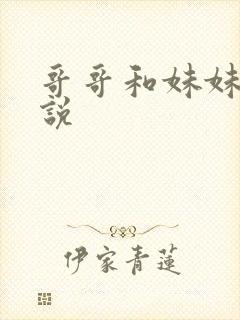 哥哥和妹妹
説
伊家青蓮